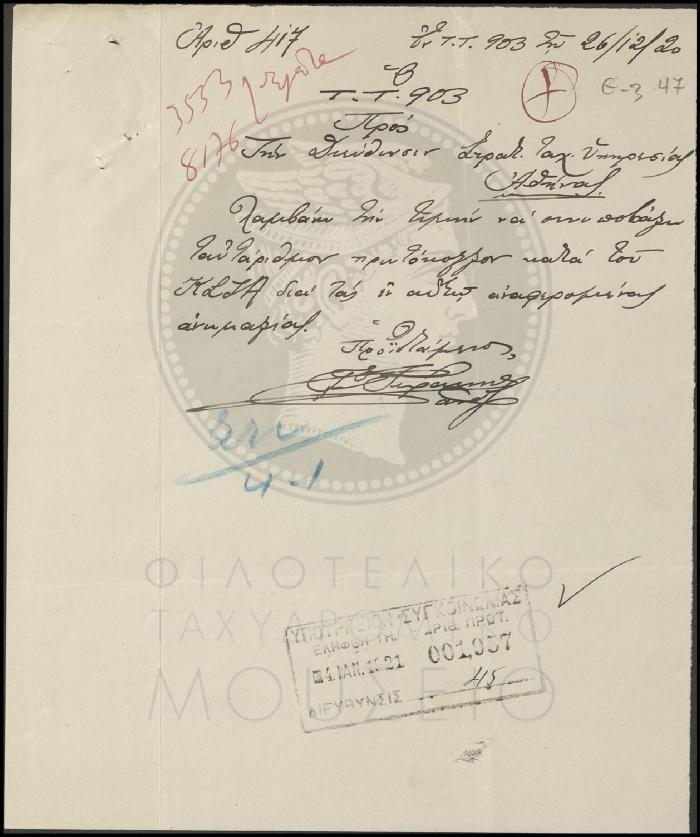 Ἀριθ 417
Ἐν Τ.Τ. 903 τῇ 26/12/20
3533
8176
Ε-3 47
Ὁ
Τ.Τ. 903
Πρὸς
Τὴν Διεύθυνσιν Στρατ. Ταχ. Ὑπηρεσίας
Ἀθήνας.
Λαμβάνω τὴν τιμὴν νὰ συνυποβάλω
πρωτόκολλον κατὰ τοῦ
διὰ τάς ἐν αὐτῷ ἀναφερομένας
ἀνωμαλίας.
Ὁ
Προϊστάμενος
4-1
ΦΙΛΟΤΕΛΙΚΟ
ΤΑΧΥΔΡΟΜΙΚΟ
ΜΟΥΣΕΙΟ
ΥΠΟΥΡΓΕΙΟΝ ΣΥΓΚΟΙΝΩΝΙΑΣ
ΕΛΗΦΘΗ ΤΗ. ΑΡΙΘ. ΠΡΩΤ.
4. ΙΑΝ. 1921 001,957
ΔΙΕΥΘΥΝΣΙΣ 45